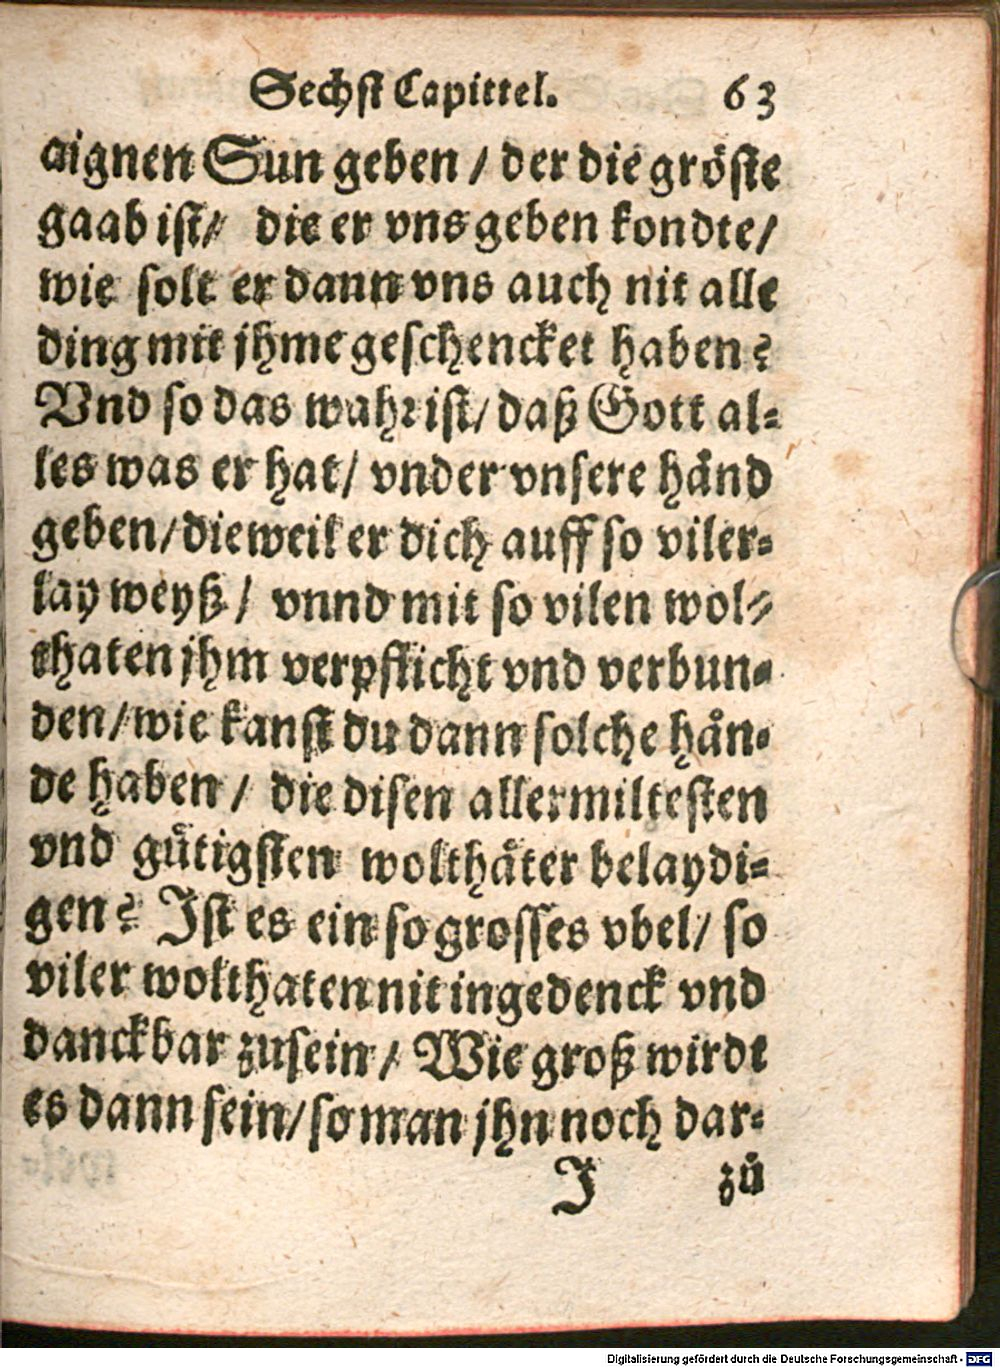 Sechst Capittel. 63
aignen Sun geben / der die gröste
gaab ist / die er vns geben kondte /
wie solt er dann vns auch nit alle
ding mit jhme geschencket haben?
Vnd so das wahr ist / daß Gott al-
les was er hat / vnder vnsere händ
geben / dieweil er dich auff so viler-
lay weyß / vnnd mit so vilen wol-
thaten jhm verpflicht vnd verbun-
den / wie kanst du dann solche hån-
de haben / die disen allermiltesten
vnd gütigsten wolthäter belaydi-
gen? Ist es ein so grosses vbel / so
viler wolthaten nit ingedenck vnd
danckbar zusein / Wie groß wirdt
es dann sein / so man jhn noch dar-
J zů
Digitalisierung gefördert durch die Deutsche Forschungsgemeinschaft - DFG